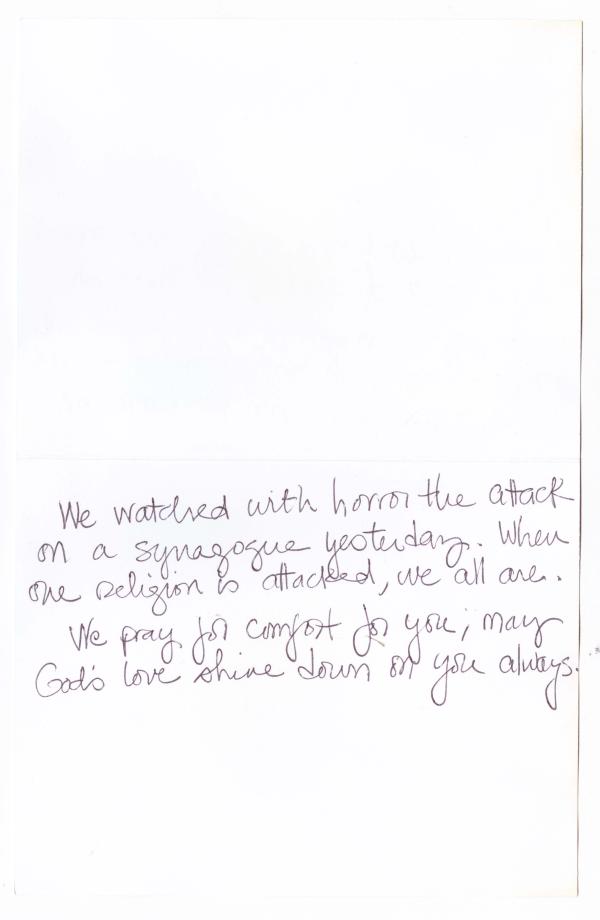 We watched with horror the attack
on a synagogue yesterday. When
one religion is attacked, we all are.
We pray for comfort for you; may
God's love shine down on you always.